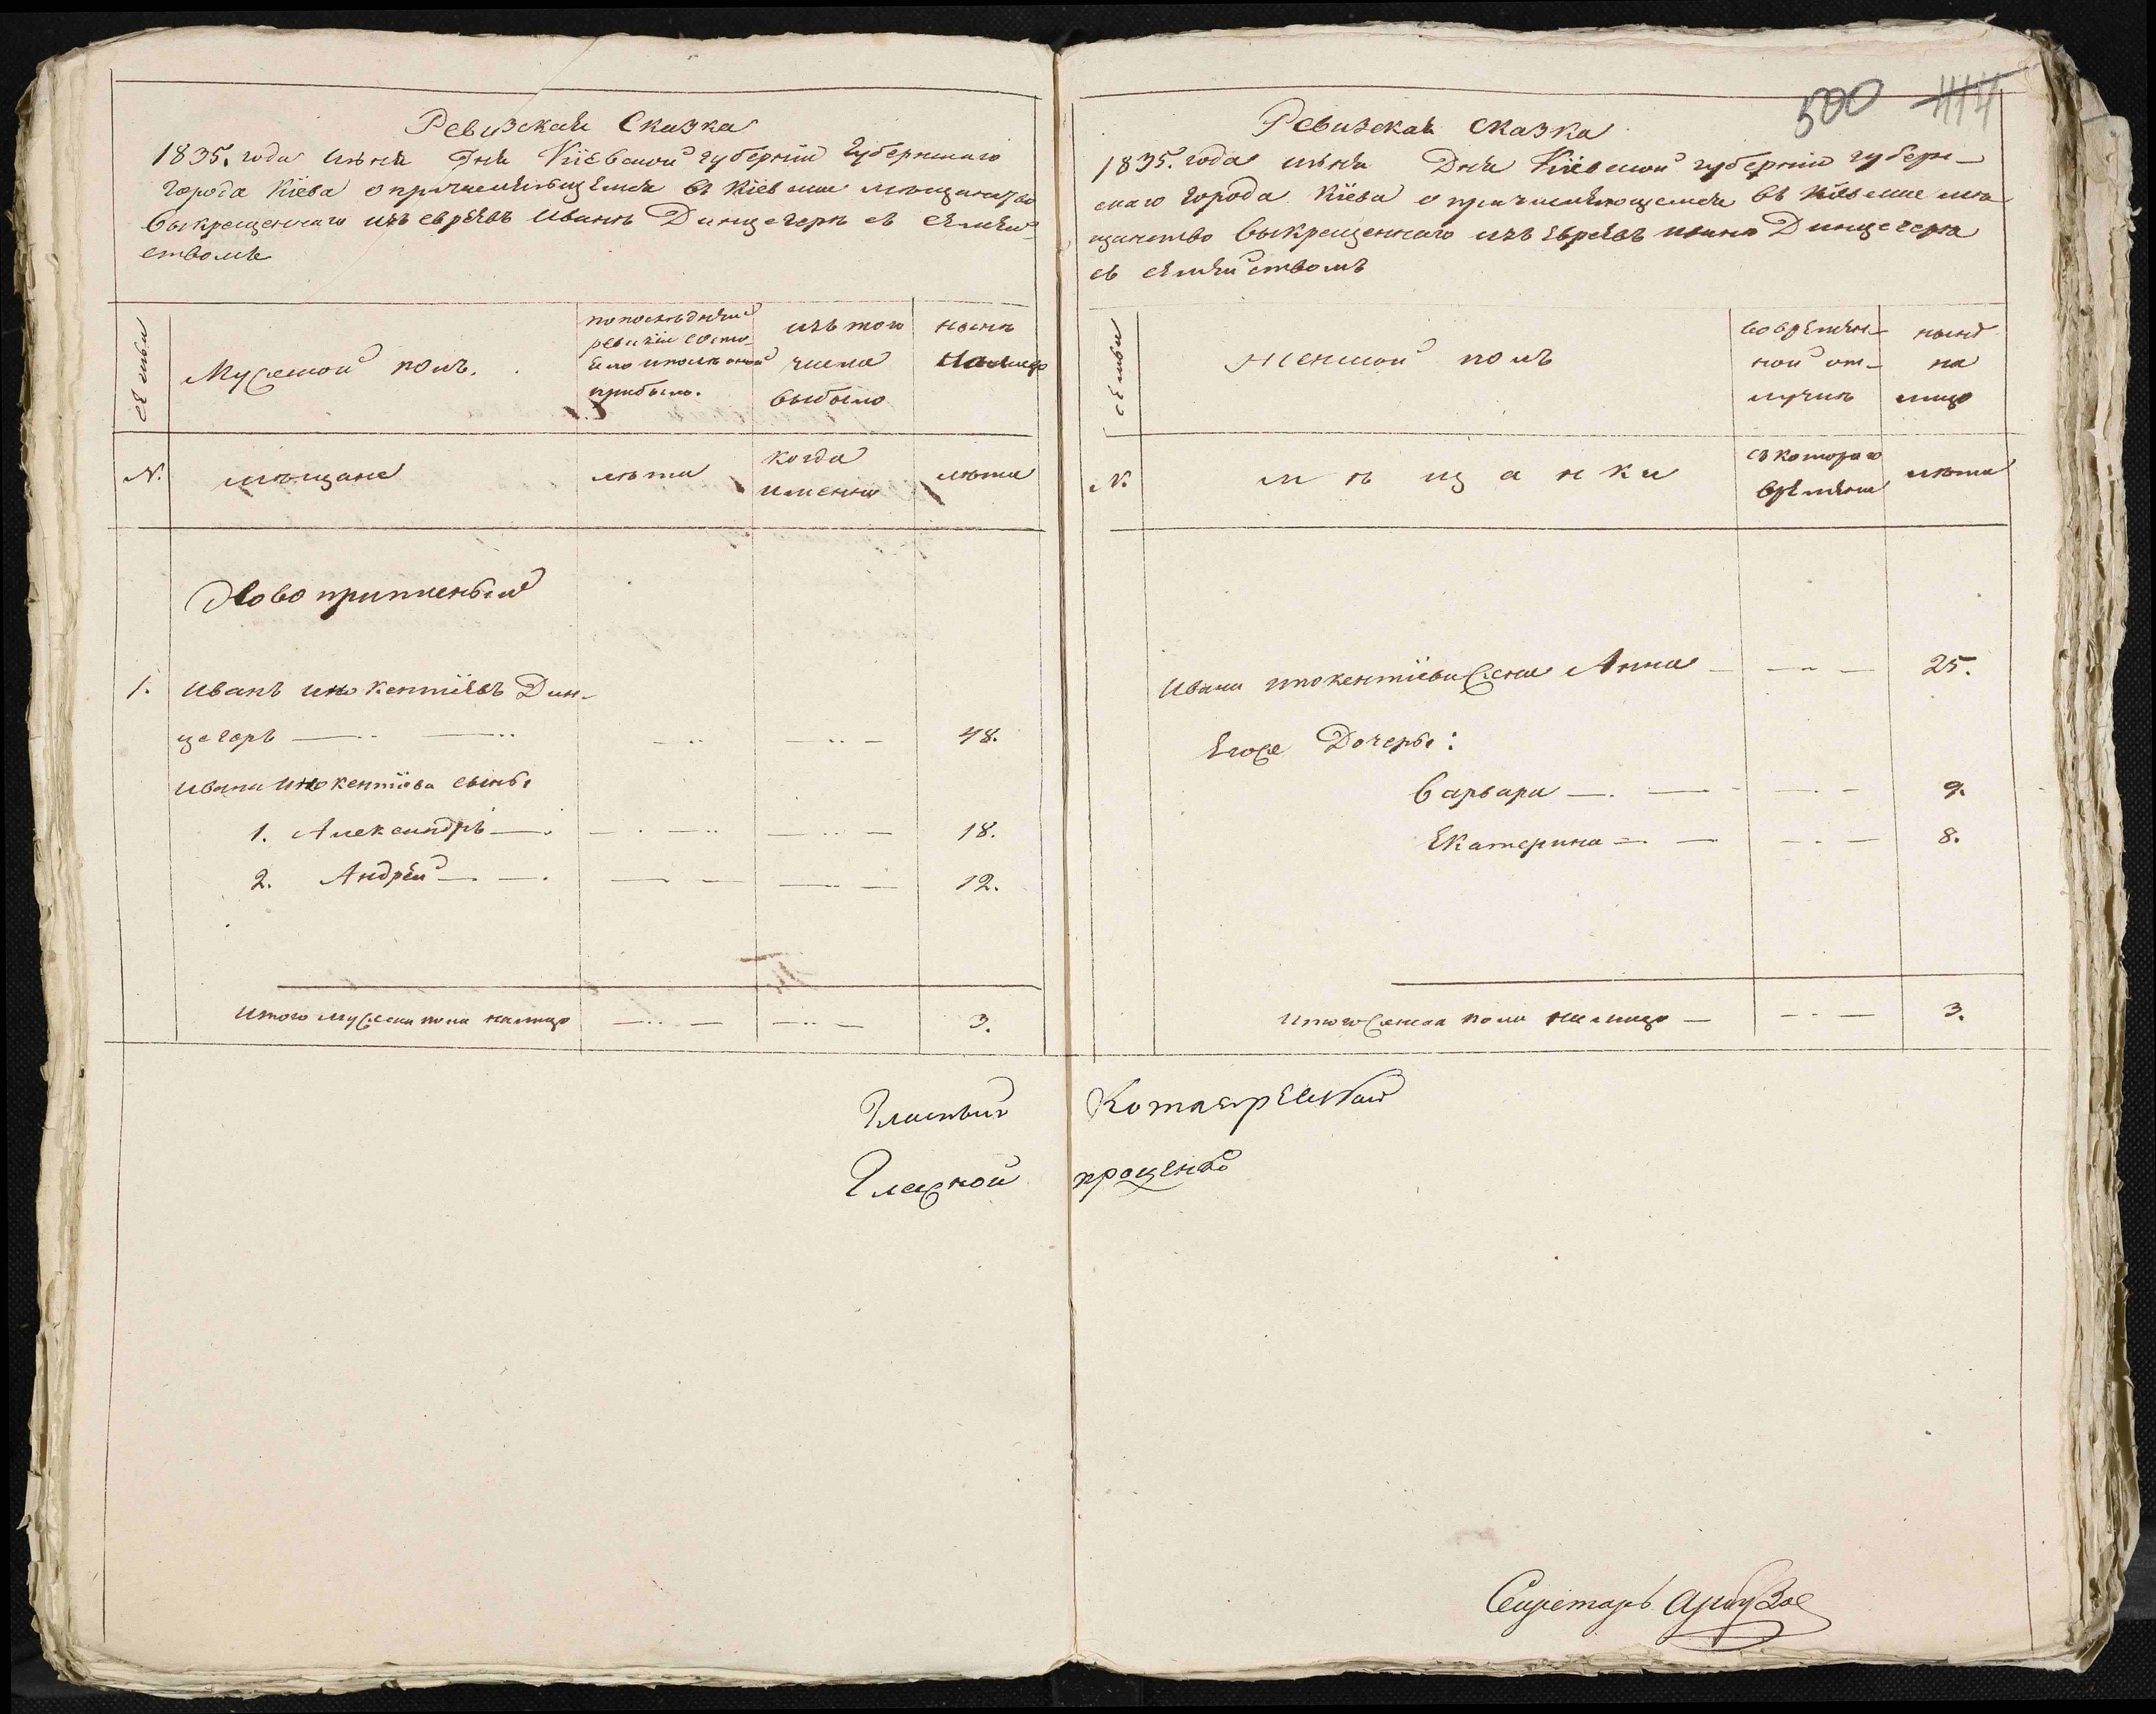 Ревизская Сказка
1835. года мѣся Дня Кіевской губерніи Губернскаго
города Кіева о причисляющемся въ Кіевское мѣщанство
выкрещеннаго изъ евреевъ Ивана Динцегера съ семей-
ствомъ
семьи
Мужеской полъ.
по последней
ревизіи состо-
яло и после оной
прибыло.
изъ того
числа
выбыло
ныне
налицо
№.
мѣщане
лѣта
когда
именно
лѣта
Ново приписной
1. Иванъ Инокентіевъ Дин-
цегеръ 48.
Ивана Инокентіева сыны
1. Александръ 18.
2. Андрей 12.
Итого мужеска пола налицо 3.
500 444
Ревизская Сказка
1835. года мѣся Дня Кіевской губерніи губерн-
скаго города Кіева о причисляющемся въ Кіевское мѣ-
щанство выкрещеннаго изъ Евреевъ Ивана Динцегера
съ семействомъ
семьи
Женской полъ
во времен-
ной от-
лучкѣ
ныне
на
лицо
№.
мѣщанки
съ котораго
времени
лѣта
Ивана Инокентіева жена Анна 25.
Егоже Дочеры:
Варвара 9.
Екатерина 8.
Итого женска пола налицо 3.
Гласный
Гласной проценко
Секретарь